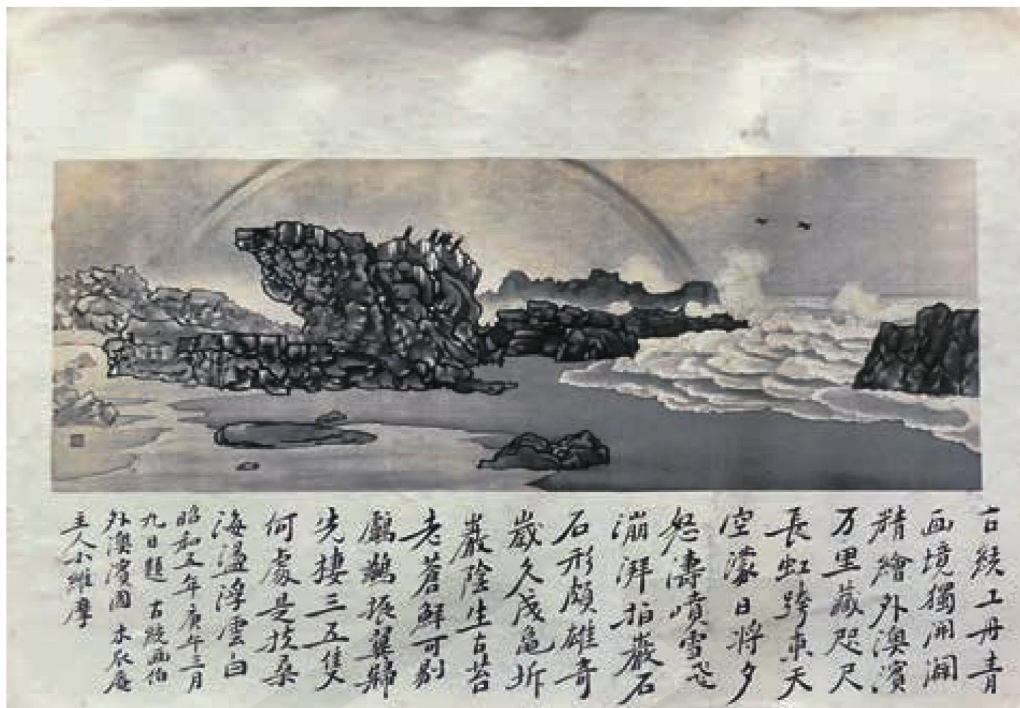 古統工丹青
画境獨開濶
精繪外澳濱
万里藏咫尺
長虹跨東天
空濛日將夕
怒濤噴雪飛
漰湃拍巖石
石形頗雄奇
歲久成龜坼
巖陰生古苔
老蒼鮮可剔
鸕鶿振翼歸
先棲三五隻
何處是扶桑
海溢浮雲白
昭和五年庚午三月
九日題 古統画伯
外澳濱圖 木辰庵
主人小維摩